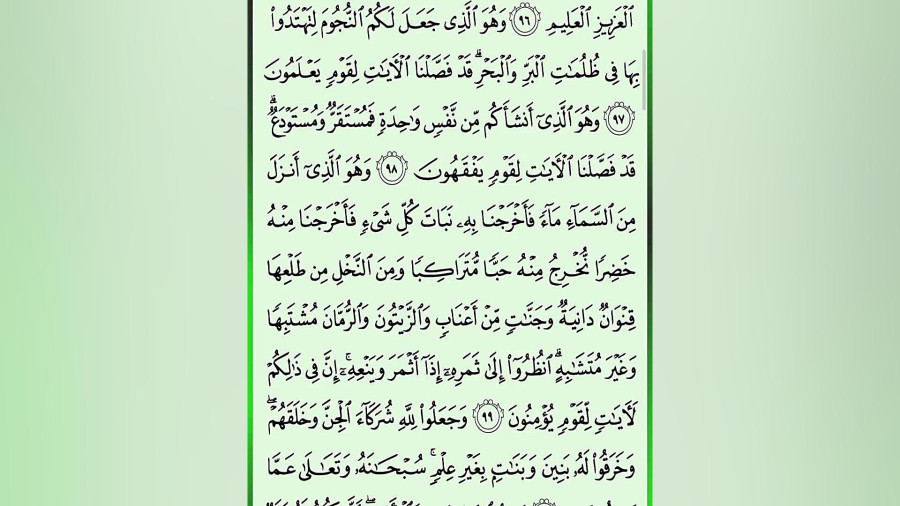 ٱلۡعَزِيزِ ٱلۡعَلِيمِ ٩٦ وَهُوَ ٱلَّذِي جَعَلَ لَكُمُ ٱلنُّجُومَ لِتَهۡتَدُواْ
بِهَا فِي ظُلُمَٰتِ ٱلۡبَرِّ وَٱلۡبَحۡرِۗ قَدۡ فَصَّلۡنَا ٱلۡأٓيَٰتِ لِقَوۡمٖ يَعۡلَمُونَ
٩٧ وَهُوَ ٱلَّذِيٓ أَنشَأَكُم مِّن نَّفۡسٖ وَٰحِدَةٖ فَمُسۡتَقَرّٞ وَمُسۡتَوۡدَعٞۗ
قَدۡ فَصَّلۡنَا ٱلۡأٓيَٰتِ لِقَوۡمٖ يَفۡقَهُونَ ٩٨ وَهُوَ ٱلَّذِيٓ أَنزَلَ
مِنَ ٱلسَّمَآءِ مَآءٗ فَأَخۡرَجۡنَا بِهِۦ نَبَاتَ كُلِّ شَيۡءٖ فَأَخۡرَجۡنَا مِنۡهُ
خَضِرٗا نُّخۡرِجُ مِنۡهُ حَبّٗا مُّتَرَاكِبٗا وَمِنَ ٱلنَّخۡلِ مِن طَلۡعِهَا
قِنۡوَانٞ دَانِيَةٞ وَجَنَّٰتٖ مِّنۡ أَعۡنَابٖ وَٱلزَّيۡتُونَ وَٱلرُّمَّانَ مُشۡتَبِهٗا
وَغَيۡرَ مُتَشَٰبِهٍۗ ٱنظُرُوٓاْ إِلَىٰ ثَمَرِهِۦٓ إِذَآ أَثۡمَرَ وَيَنۡعِهِۦٓۚ إِنَّ فِي ذَٰلِكُمۡ
لَأٓيَٰتٖ لِّقَوۡمٖ يُؤۡمِنُونَ ٩٩ وَجَعَلُواْ لِلَّهِ شُرَكَآءَ ٱلۡجِنَّ وَخَلَقَهُمۡۖ
وَخَرَقُواْ لَهُۥ بَنِينَ وَبَنَٰتِۭ بِغَيۡرِ عِلۡمٖۚ سُبۡحَٰنَهُۥ وَتَعَٰلَىٰ عَمَّا